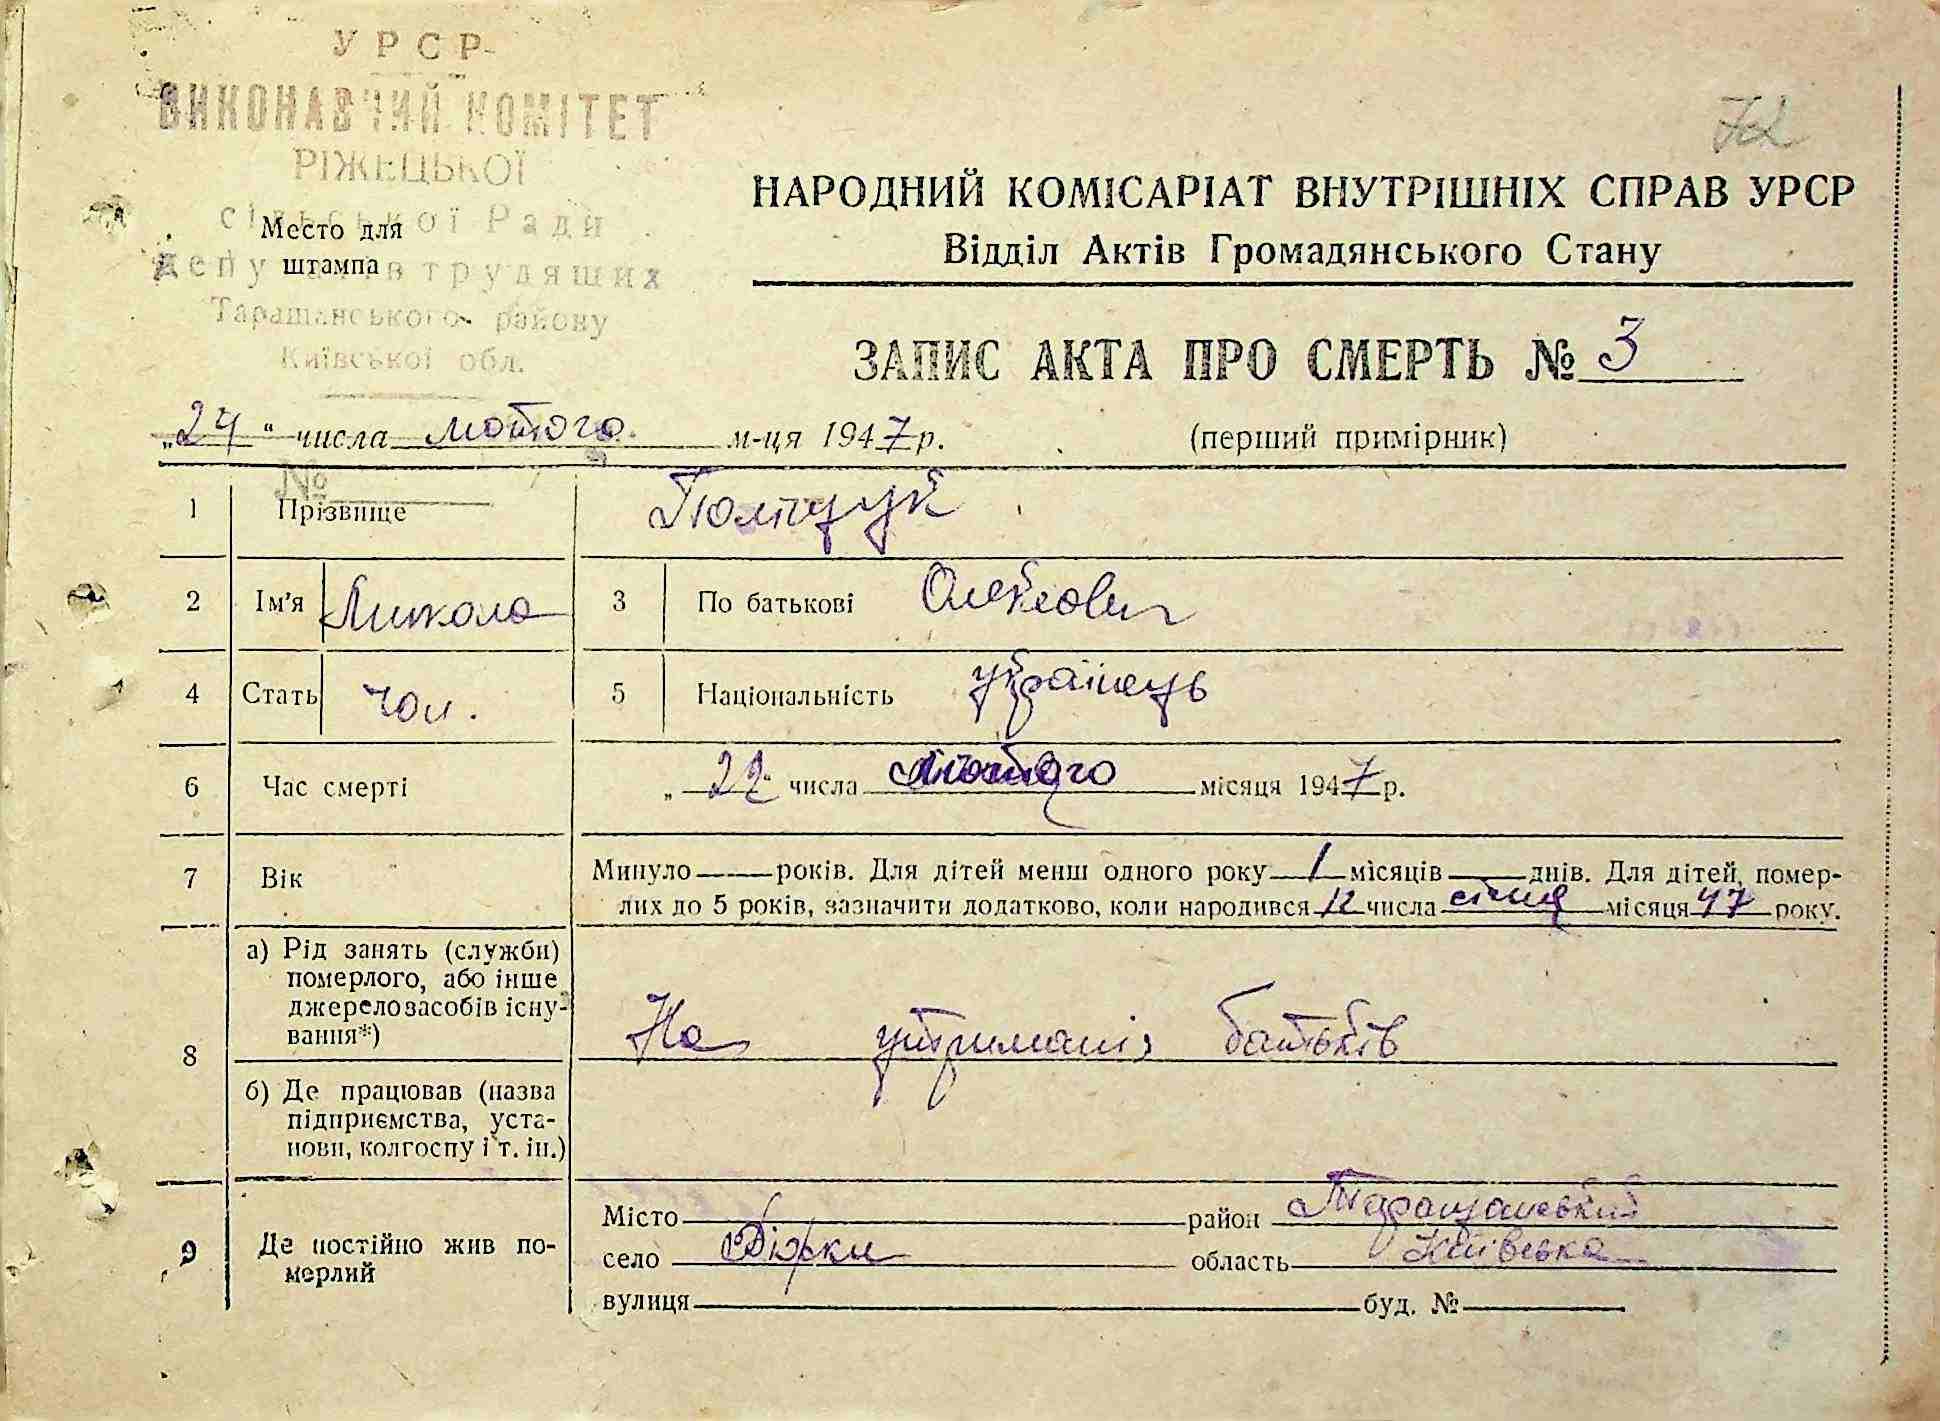 УРСР
ВИКОНАВЧИЙ КОМІТЕТ
РІЖЕЦЬКОЇ
сільської Ради
депутатів трудящих
Таращанського району
Київської обл.
Место для
штампа
72
НАРОДНИЙ КОМІСАРІАТ ВНУТРІШНІХ СПРАВ УРСР
Відділ Актів Громадянського Стану
ЗАПИС АКТА ПРО СМЕРТЬ № 3
„24“ числа лютого м-ця 1947 р.
(перший примірник)
№
1 Прізвище Поліщук
2 Ім'я Микола 3 По батькові Олексович
4 Стать чол. 5 Національність українець
6 Час смерті „22“ числа лютого місяця 1947 р.
7 Вік Минуло — років. Для дітей менш одного року 1 місяців — днів. Для дітей, помер-
лих до 5 років, зазначити додатково, коли народився 12 числа січня місяця 47 року.
8 а) Рід занять (служби)
померлого, або інше
джерело засобів існу-
вання*)
На утриманія батьків
б) Де працював (назва
підприємства, уста-
нови, колгоспу і т. ін.)
9 Де постійно жив по-
мерлий
Місто район Таращанський
село Бірки область Київська
вулиця буд. №